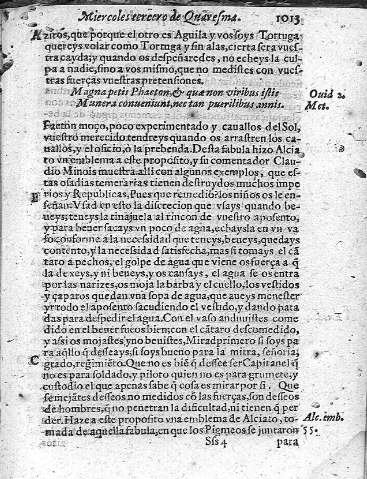 Miercoles tercero de Quaresma. 1013
A ziros, que porque el otro es Aguila y vos soys Tortuga
quereys volar como Tortuga y sin alas, cierta sera vues
tra cayda; y quando os despeñaredes, no echeys la cul
pa a nadie, sino a vos mismo, que no medistes con vues
tras fuerças vuestras pretensiones.
Magna petis Phaeton, & quæ non viribus istis Ouid 2.
Munera conueniunt, nec tam puerilibus annis. Met.
Faeton moço, poco experimentado y cauallos del Sol,
vuestro merecido tendreys quando os arrastren los ca
uallos, y el oficio, o la prebenda. Desta fabula hizo Alcia
to vn emblema a este proposito, y su comentador Clau
dio Minois muestra alli con algunos exemplos, que es-
tas osadias temerarias tienen destruydos muchos impe
rios y Republicas. Pues que remedio? los niños os le en-
B señan. Vsad en esto la discrecion que vsays quando be-
ueys; teneys la tinajuela al rincon de vuestro aposento,
y para beuer sacays vn poco de agua, echaysla en vn va
so conforme a la necessidad que teneys, beueys, quedays
contento, y la necessidad satisfecha, mas si tomays el cã
taro a pechos, el golpe de agua que viene os fuerça a q̃
la dexeys, y ni beueys, y os cansays, el agua se os entra
por las narizes, os moja la barba y el cuello, los vestidos
y çapatos quedan vna sopa de agua, que aueys menester
yr todo el aposento sacudiendo el vestido, y dando pata
das para despedir el agua. Con el vaso anduuistes come
dido en el beuer fue os bien; con el cãtaro descomedido,
y assi os mojastes y no beuistes, Mirad primero si soys pa
ra aq̃llo q̃ desseays, si soys bueno para la mitra, señoria,
C grado, regimiẽto. Que no es biẽ q̃ dessee ser Capitan el q̃
no es para soldado, y piloto quien no es para grumete, y
custodio el que apenas sabe q̃ cosa es mirar por si. Que
semejãtes desseos no medidos cõ las fuerças, son desseos
de hombres, q̃ no penetran la dificultad, ni tienen q̃ per
der. Haze a este proposito vna emblema de Alciato, to- Alc. emb.
mada de aquella fabula, en que los Pigmeos se juntaron 55.
Sss 4 para